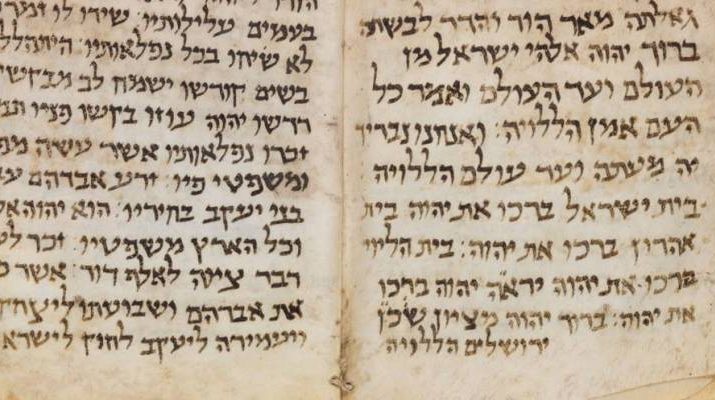 גדלתה מאד הוד והדר לבשתה
ברוך יהוה אלהי ישראל מן
העולם ועד העולם ואמר כל
העם אמן הללויה: ואנחנו נבריך
יה מעתה ועד עולם הללויה
בית ישראל ברכו את יהוה בית
אהרון ברכו את יהוה: בית הליוי
ברכו את יהוה יראה יהוה ברכו
את יהוה: ברוך יהוה מציון שכן
ירושלים הללויה
בעמים עלילותיו: שירו לו זמרו
לא שיחו בכל נפלאותיו: היתהלל
בשים קודשו ישמח לב מבקשי
דרשו יהוה עוזו בקשו פניו
זכרו נפלאותיו אשר עשה
ומשפטי פיו: זרע אברהם
בני יעקב בחיריו: הוא יהוה
וכל הארץ משפטיו: זכר
דבר ציוה לאלף דור: אשר
את אברהם ושבועתו ליצחק
ויעמידה ליעקב לחוק לישרא